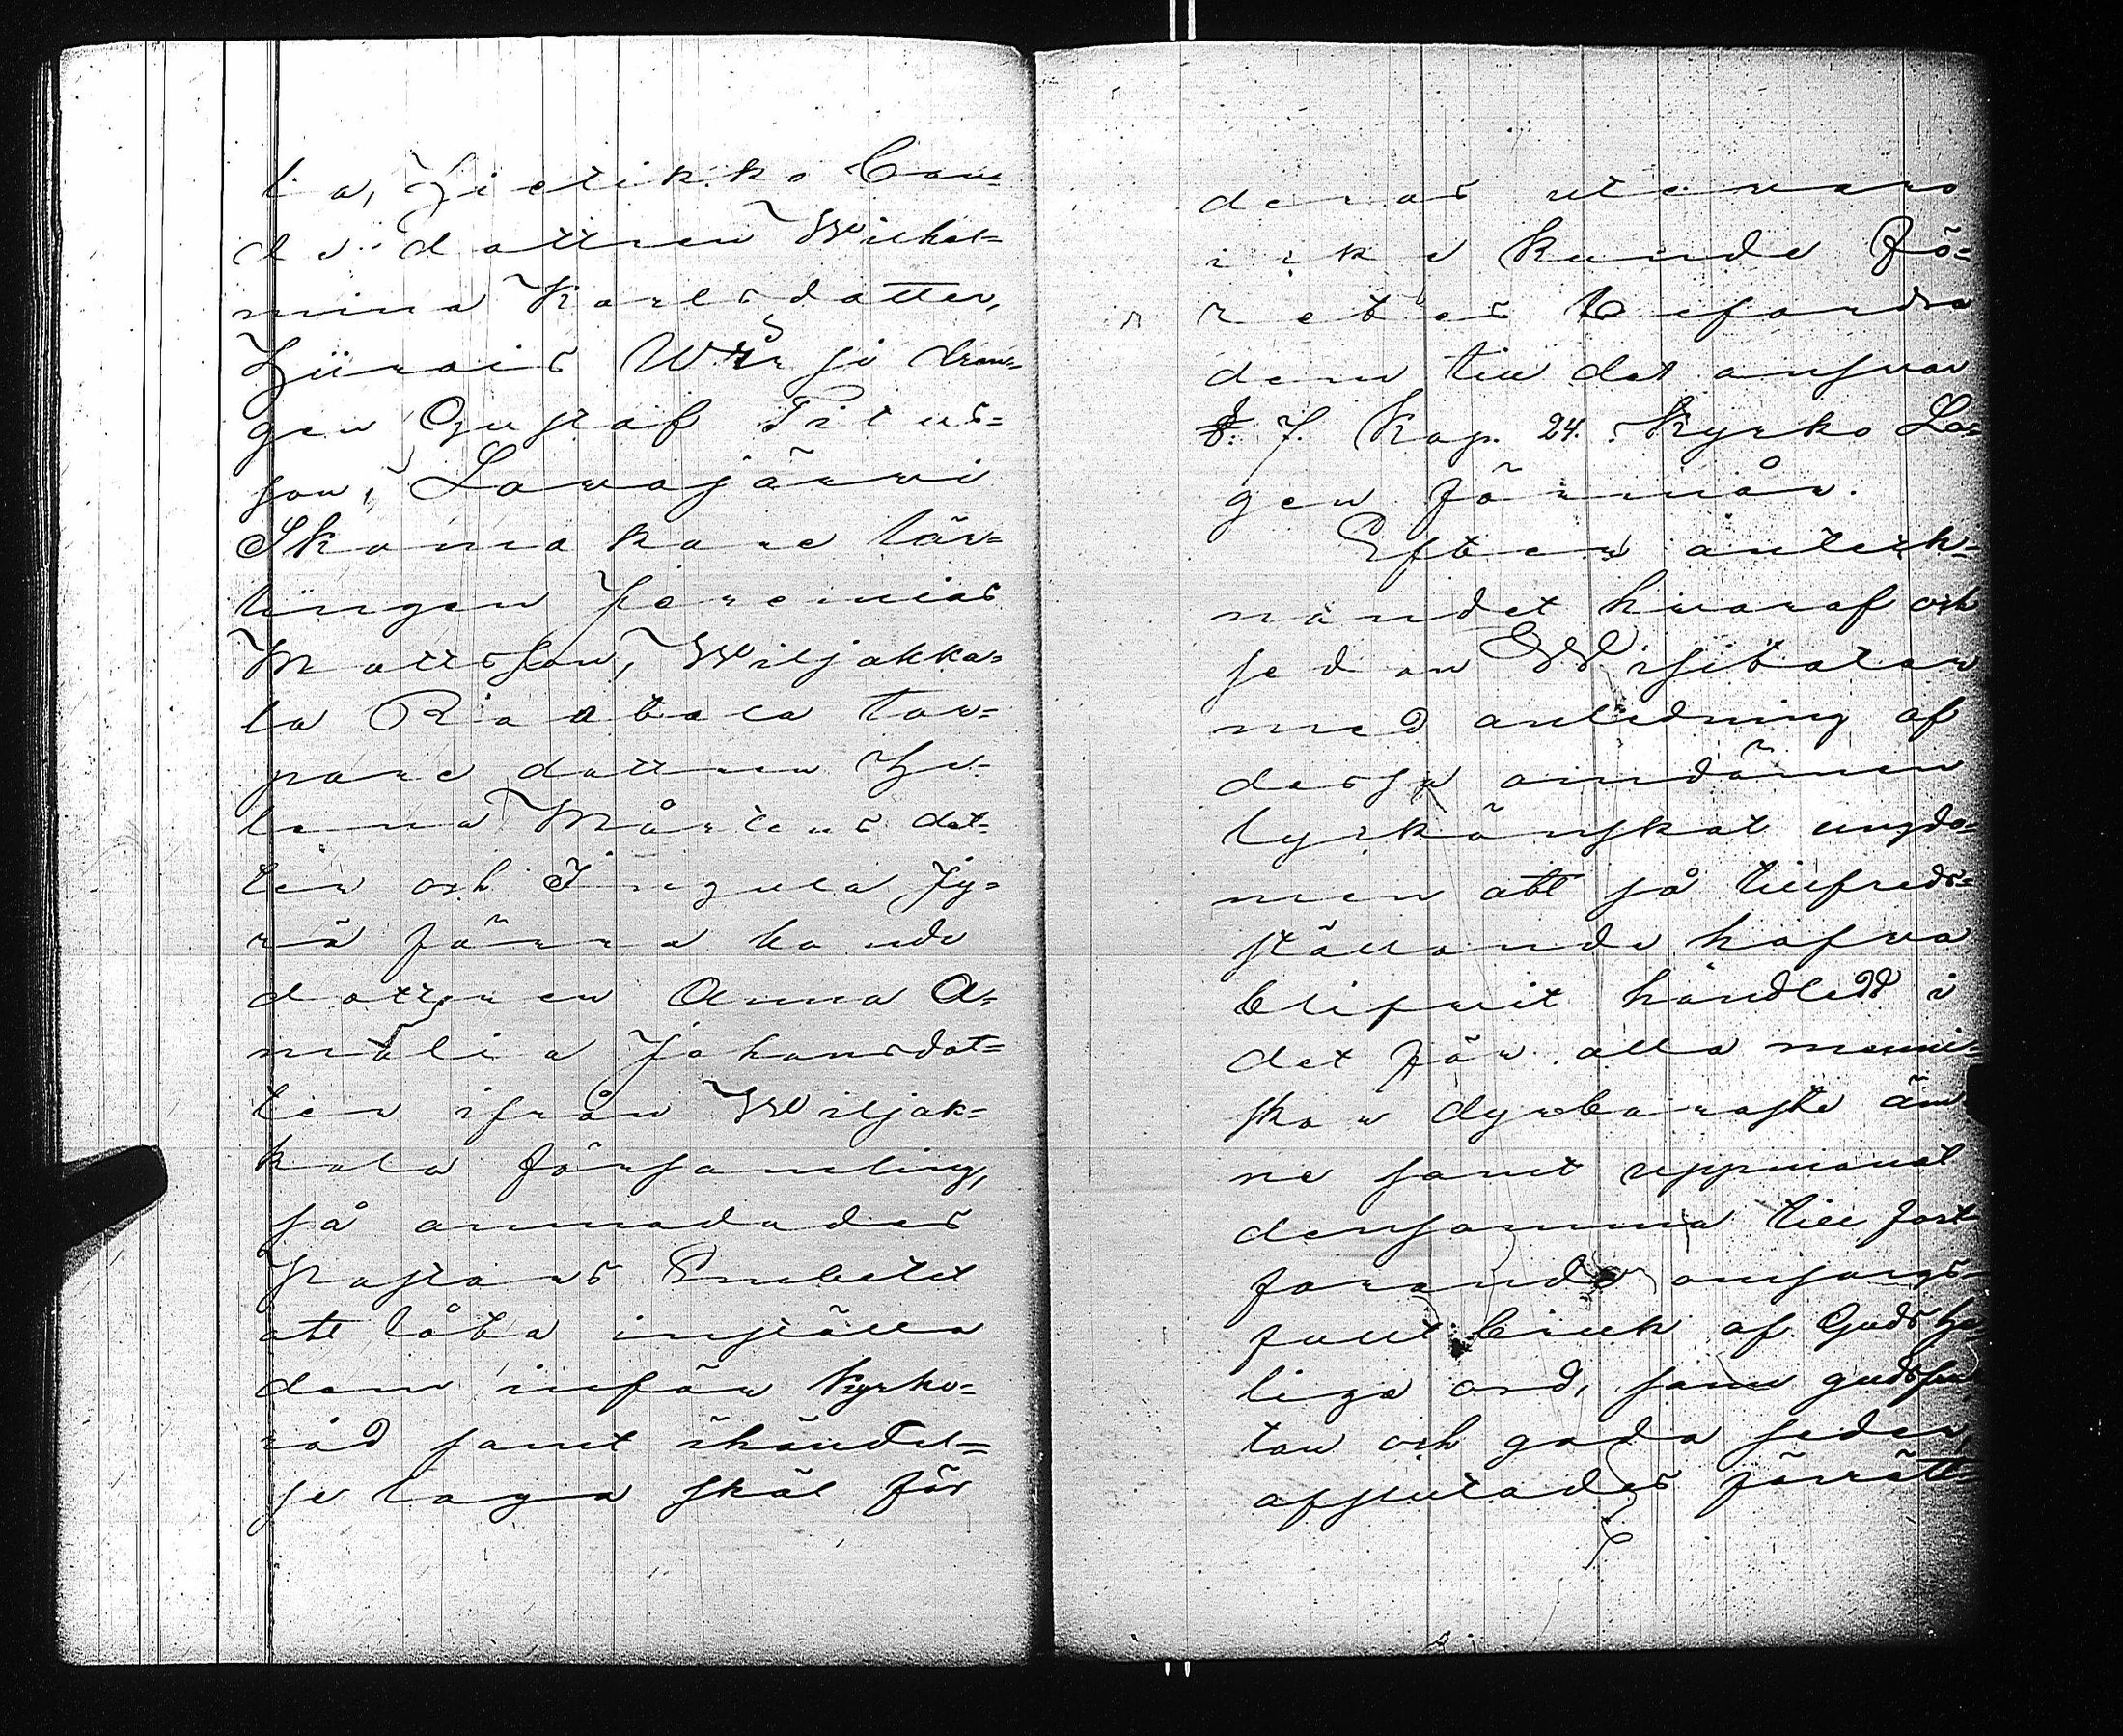 la, Hietikko Bon-
de dottren Wilhel=
mina Karlsdotter,
Hiirois Wärji dren-
gen Gustaf Titus=
son, Lavajärvi
Skomakare lär-
lingen Jeremias
Mattsson, Wiljakka=
la Raatala tor=
pare dottren He-
lena Mårtensdot-
ter och Inkula Jy=
rä förra bonde
dottren Anna A=
malia Johansdot=
ter ifrån Wiljak=
kala församling,
så anmodades
Pastors Embetet
att låta inställa
dem inför Kyrko=
råd samt ihändel=
se laga skäl för
deras utevaro
icke kunde fö=
retes befordra
dem till det ansvar
§. 7. Kap. 24. Kyrko La-
gen förmår.
Efter anteck-
nandet hvaraf och
sedan Visitator
med anledning af
dessa omdömen
lyckönskat ungdo=
men att så tillfreds=
ställande hafva
blifvit handledd i
det för alla menni=
skor dyrbaraste äm
ne samt uppmanat
densamma till fort
farande omsorgs-
fullt bruk af Guds he-
liga ord, sann gudsfru
tan och goda seder,
afslutades förrätt-